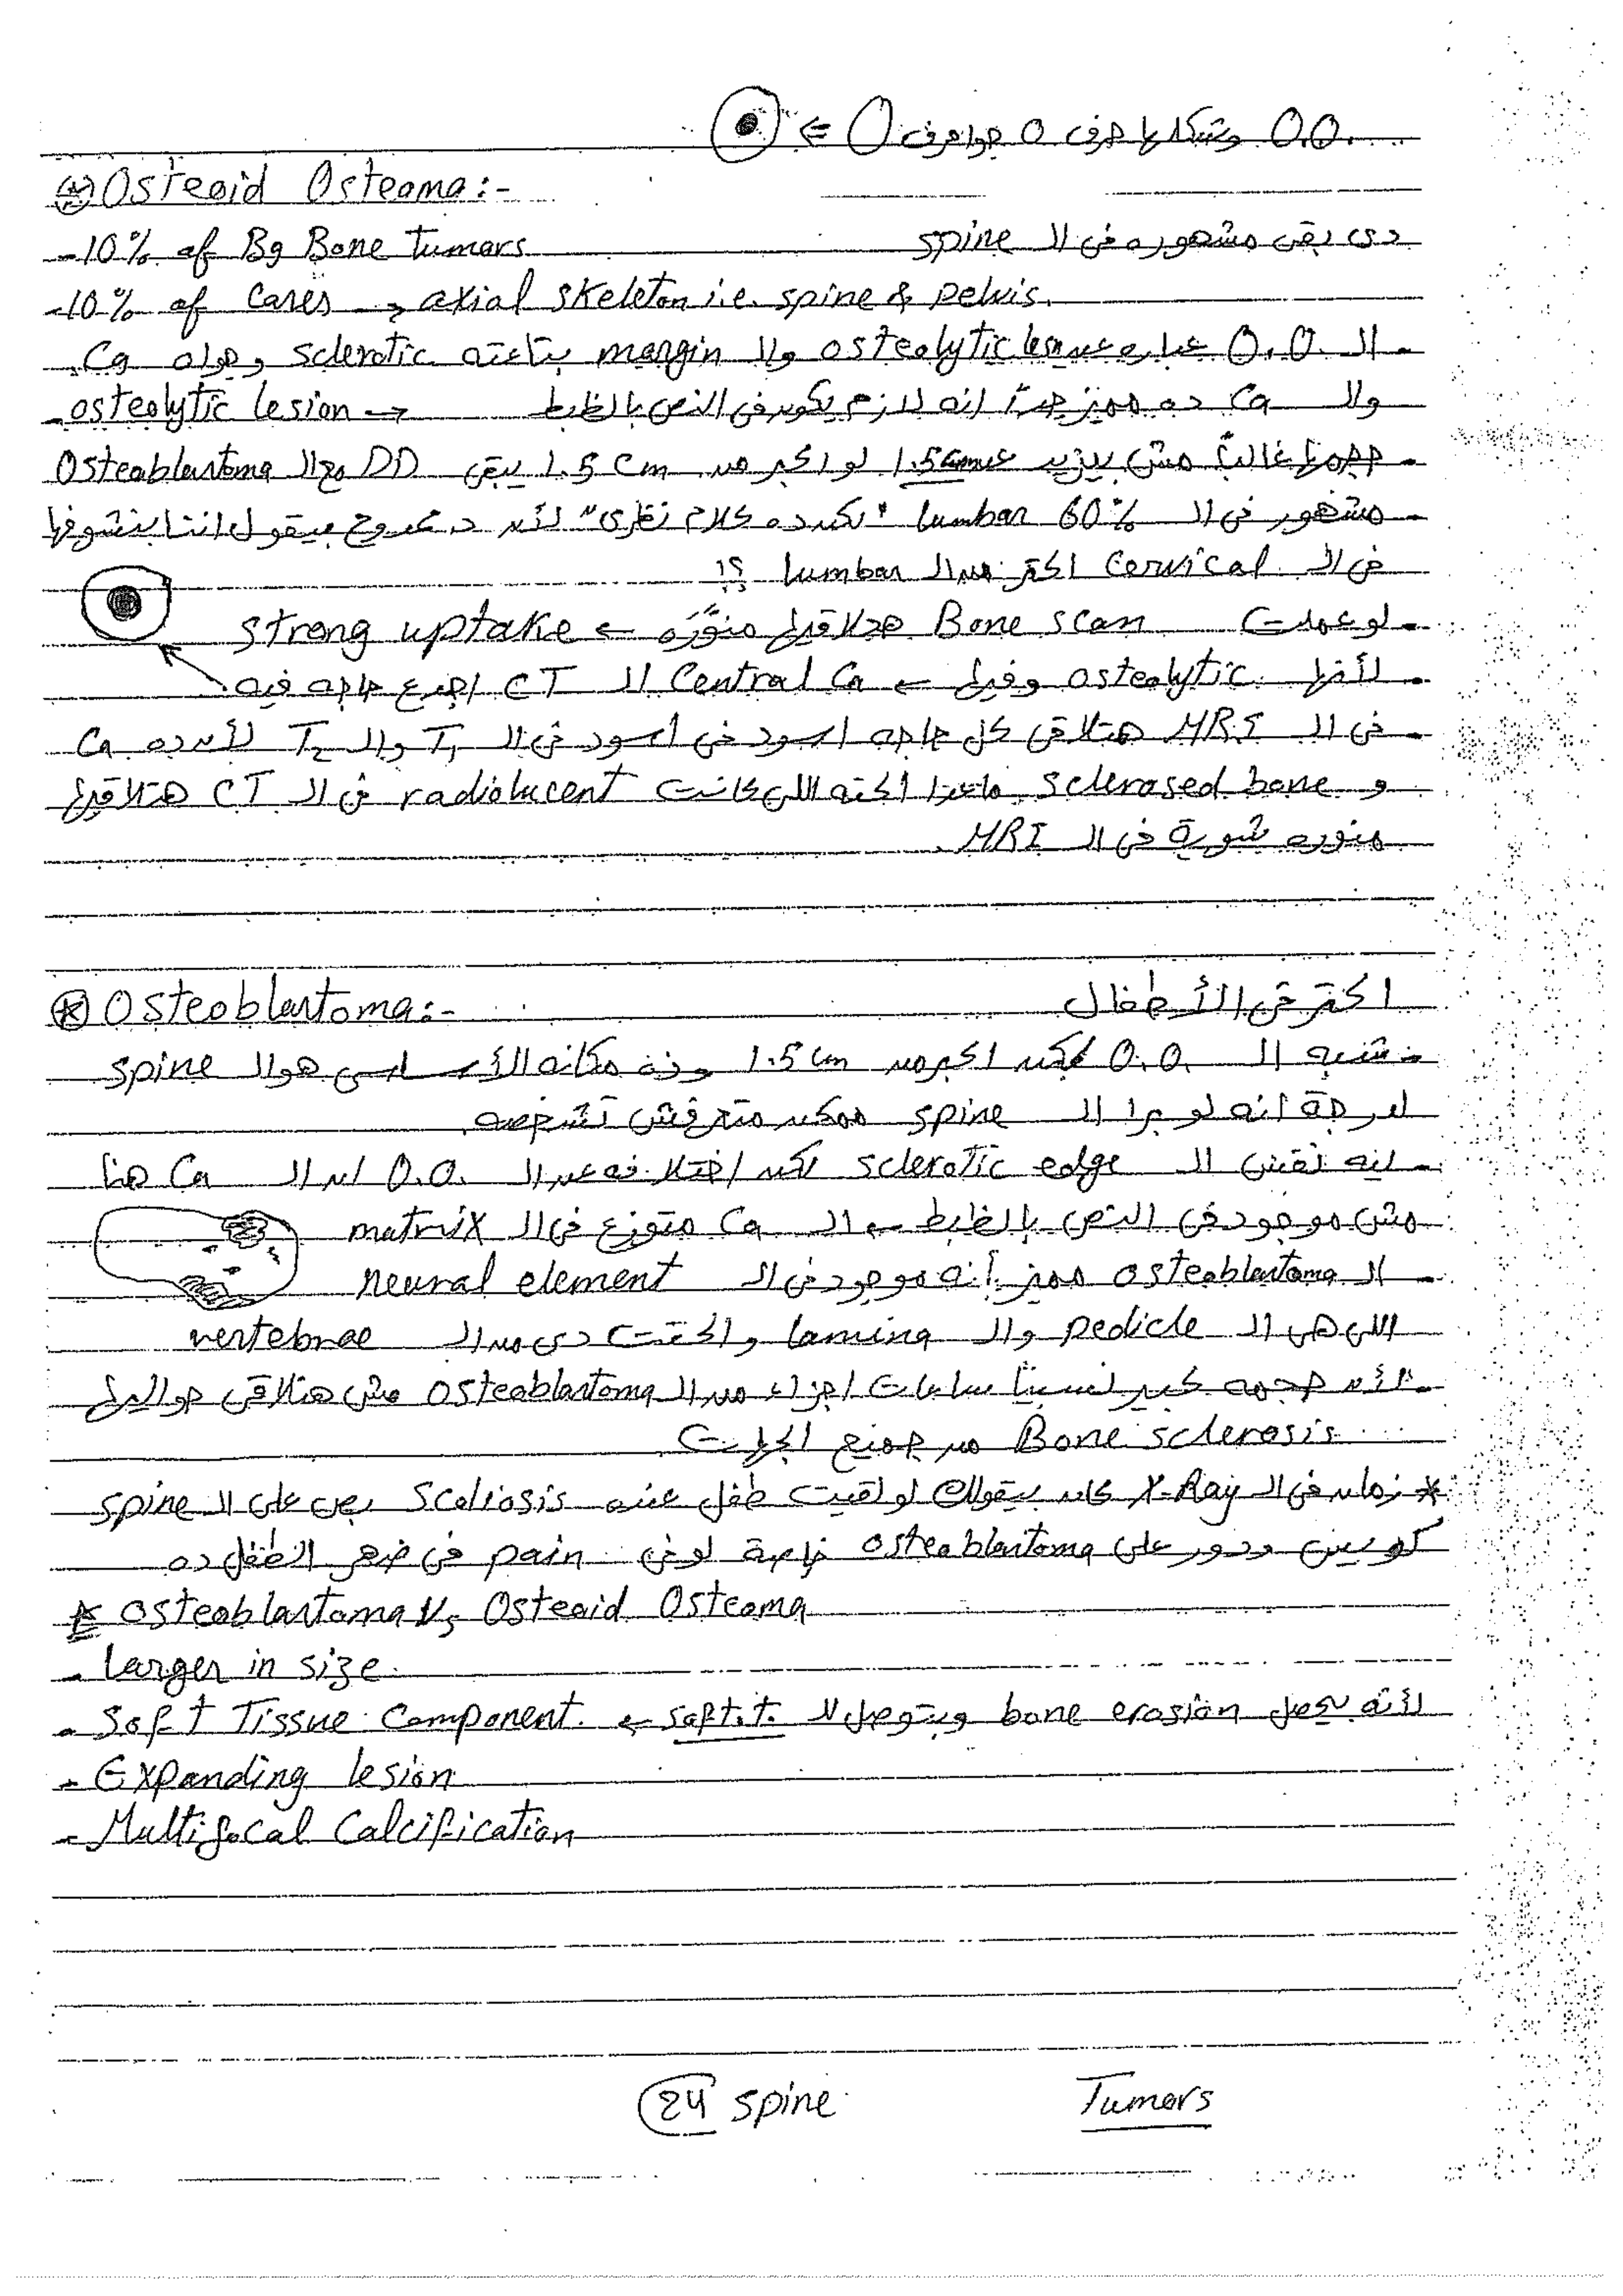 O.O. وشكلها حرف O جوا حرف O ⇐
⊛ Osteoid Osteoma:-
- 10% of Bg Bone Tumors دى بقى مشهوره فى الـ spine
- 10% of Cases → axial skeleton i.e. spine & pelvis.
- الـ O.O. عباره عن osteolytic lesion والـ margin بتاعته sclerotic وجواه Ca
والـ Ca ده مميز جداً انه لازم يكون فى النص بالظبط → osteolytic lesion
- حجمها غالباً مش بيزيد عن 1.5cm لو اكبر من 1.5 cm يبقى DD مع الـ Osteoblastoma
- مشهور فى الـ lumbar 60% "لكن ده كلام نظرى" لأن د. ممدوح بيقول اننا بنشوفها
فى الـ Cervical اكتر من الـ lumbar ؟!
- لو عملت Bone scan هتلاقيها منوَّره ← strong uptake
- لأنها osteolytic وفيها Central Ca ← الـ CT اجدع حاجه فيه
- فى الـ MRI هتلاقى كل حاجه اسود فى اسود فى الـ T1 والـ T2 لأن ده Ca
و sclerosed bone ماعدا الحته اللى كانت radiolucent فى الـ CT هتلاقيها
منوره شوية فى الـ MRI.
⊛ Osteoblastoma:- اكتر فى الأطفال
- شبه الـ O.O. لكن اكبر من 1.5 cm وده مكانه الأساسى هو الـ spine
لدرجة انه لو برا الـ spine ممكن متعرفش تشخصه
- ليه نفس الـ sclerotic edge لكن اختلافه عن الـ O.O. ان الـ Ca هنا
مش موجود فى النص بالظبط ← الـ Ca متوزع فى الـ matrix
- الـ osteoblastoma مميز أنه موجود فى الـ neural element
اللى هى الـ pedicle والـ lamina والحتت دى من الـ vertebrae
- لأن حجمه كبير نسبياً ساعات اجزاء من الـ Osteoblastoma مش هتلاقى حواليها
Bone sclerosis من جميع الجهات
* زمان فى الـ X-Ray كان بيقولك لو لقيت طفل عنده Scoliosis بص على الـ spine
كويس ودور على osteoblastoma خاصة لو فى pain فى ضهر الطفل ده
* Osteoblastoma Vs Osteoid Osteoma
- larger in size
- Soft Tissue Component. ← لأنه بيعمل bone erosion وبيتوصل للـ soft.t.
- Expanding lesion
- Multifocal Calcification
24 spine Tumors